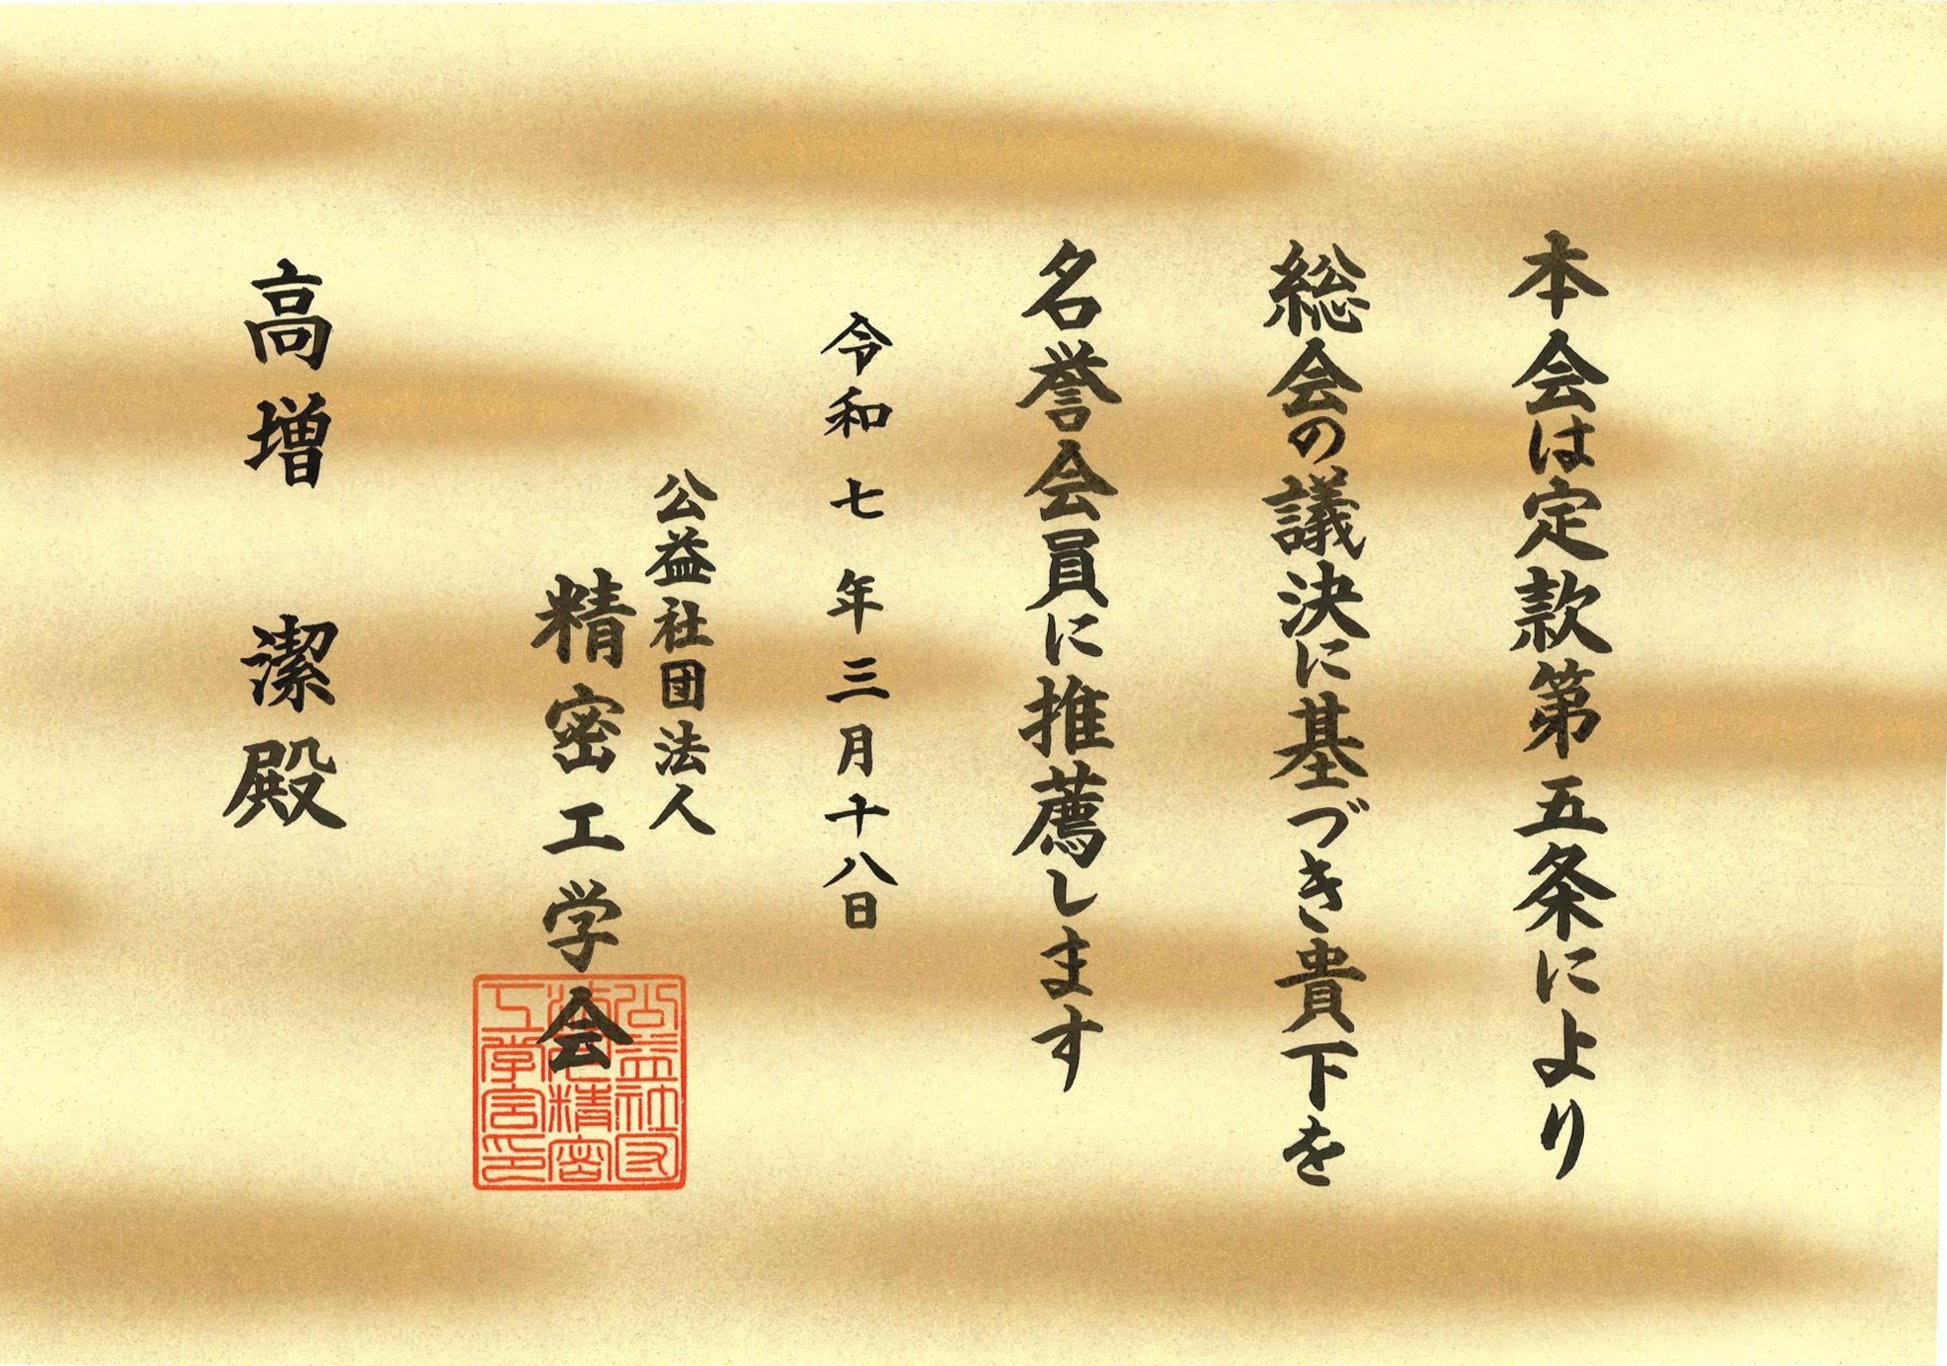 本会は定款第五条により
総会の議決に基づき貴下を
名誉会員に推薦します
令和七年三月十八日
公益社団法人
精密工学会
公益社団
法人精密
工学会印
高増 潔殿